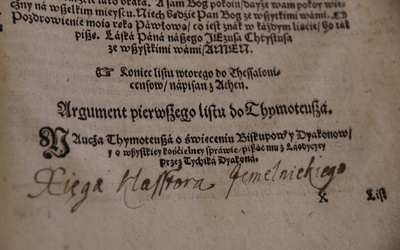 A sam Bog pokoiu/ dayże wam pokoy wie-
czny na wßelkim mieyscu. Niech będzie Pan Bog ze wßytkimi wámi.
Pozdrowienie moią ręką Páwłową/ co iest znák w káżdym liście/ bo ták
pißę. Láská Páná náßego JEzusá Chrystusá
ze wßystkimi wámi/ AMEN.
☞ Koniec listu wtorego do Thessaloni-
censow/ nápisan z Athen.
Argument pierwszego listu do Thymoteußá.
Naucza Thymoteußá o święceniu Biskupow y Dyakonow/
y o wßystkiey kościelney spráwie/ pißąc mu z Láodycyey
przez Tychiká Dyakoná.
Xięga klasztora Jemelnickiego
x
List